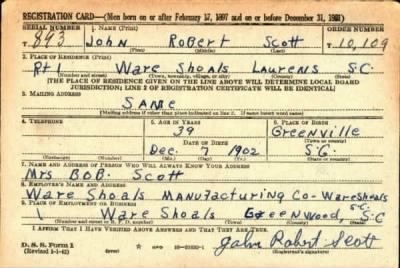 REGISTRATION CARD—(Men born on or after February 17, 1897 and on or before December 31, 1921)
SERIAL NUMBER 1. NAME (Print) ORDER NUMBER
T 893 John Robert Scott T 10,109
(First) (Middle) (Last)
2. PLACE OF RESIDENCE (Print)
Rt 1 Ware Shoals Laurens S.C.
(Number and street) (Town, township, village, or city) (County) (State)
[THE PLACE OF RESIDENCE GIVEN ON THE LINE ABOVE WILL DETERMINE LOCAL BOARD
JURISDICTION; LINE 2 OF REGISTRATION CERTIFICATE WILL BE IDENTICAL]
3. MAILING ADDRESS
SAME
[Mailing address if other than place indicated on line 2. If same insert word same]
4. TELEPHONE 5. AGE IN YEARS 6. PLACE OF BIRTH
39 Greenville
DATE OF BIRTH (Town or county)
Dec 7 1902 S.C.
(Exchange) (Number) (Mo.) (Day) (Yr.) (State or country)
7. NAME AND ADDRESS OF PERSON WHO WILL ALWAYS KNOW YOUR ADDRESS
Mrs BOB. Scott
8. EMPLOYER'S NAME AND ADDRESS
Ware Shoals Manufacturing Co - Ware Shoals S.C.
9. PLACE OF EMPLOYMENT OR BUSINESS
Ware Shoals Greenwood, S-C
(Number and street or R. F. D. number) (Town) (County) (State)
I AFFIRM THAT I HAVE VERIFIED ABOVE ANSWERS AND THAT THEY ARE TRUE.
D. S. S. Form 1
(Revised 1-1-42) (over) John Robert Scott
(Registrant's signature)